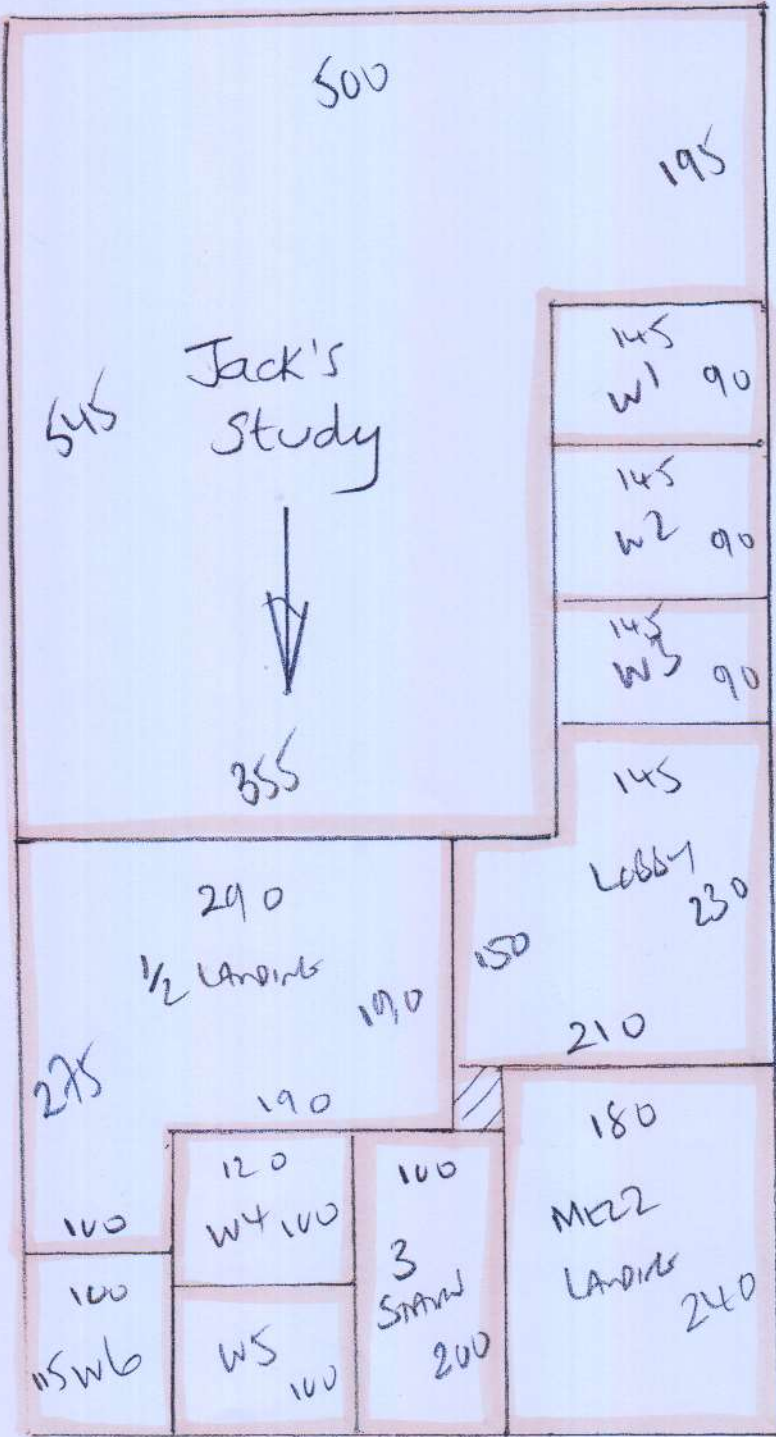 500
195
Jack's
Study
545
355
145
W1 90
145
W2 90
145
W3 90
145
LOBBY
230
150
210
290
1/2 LANDING
190
275
190
100
120
W4 100
100
3
200
180
MEZZ
LANDING
240
100
115 W6
W5
100